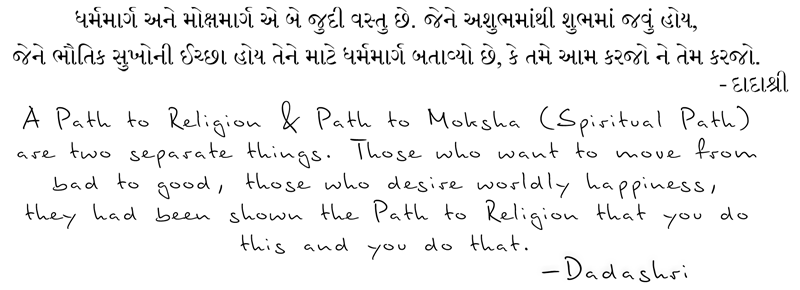 ધર્મમાર્ગ અને મોક્ષમાર્ગ એ બે જુદી વસ્તુ છે. જેને અશુભમાંથી શુભમાં જવું હોય,
જેને ભૌતિક સુખોની ઈચ્છા હોય તેને માટે ધર્મમાર્ગ બતાવ્યો છે, કે તમે આમ કરજો ને તેમ કરજો.
- દાદાશ્રી
A Path to Religion & Path to Moksha (Spiritual Path)
are two separate things. Those who want to move from
bad to good, those who desire worldly happiness,
they had been shown the Path to Religion that you do
this and you do that.
-Dadashri